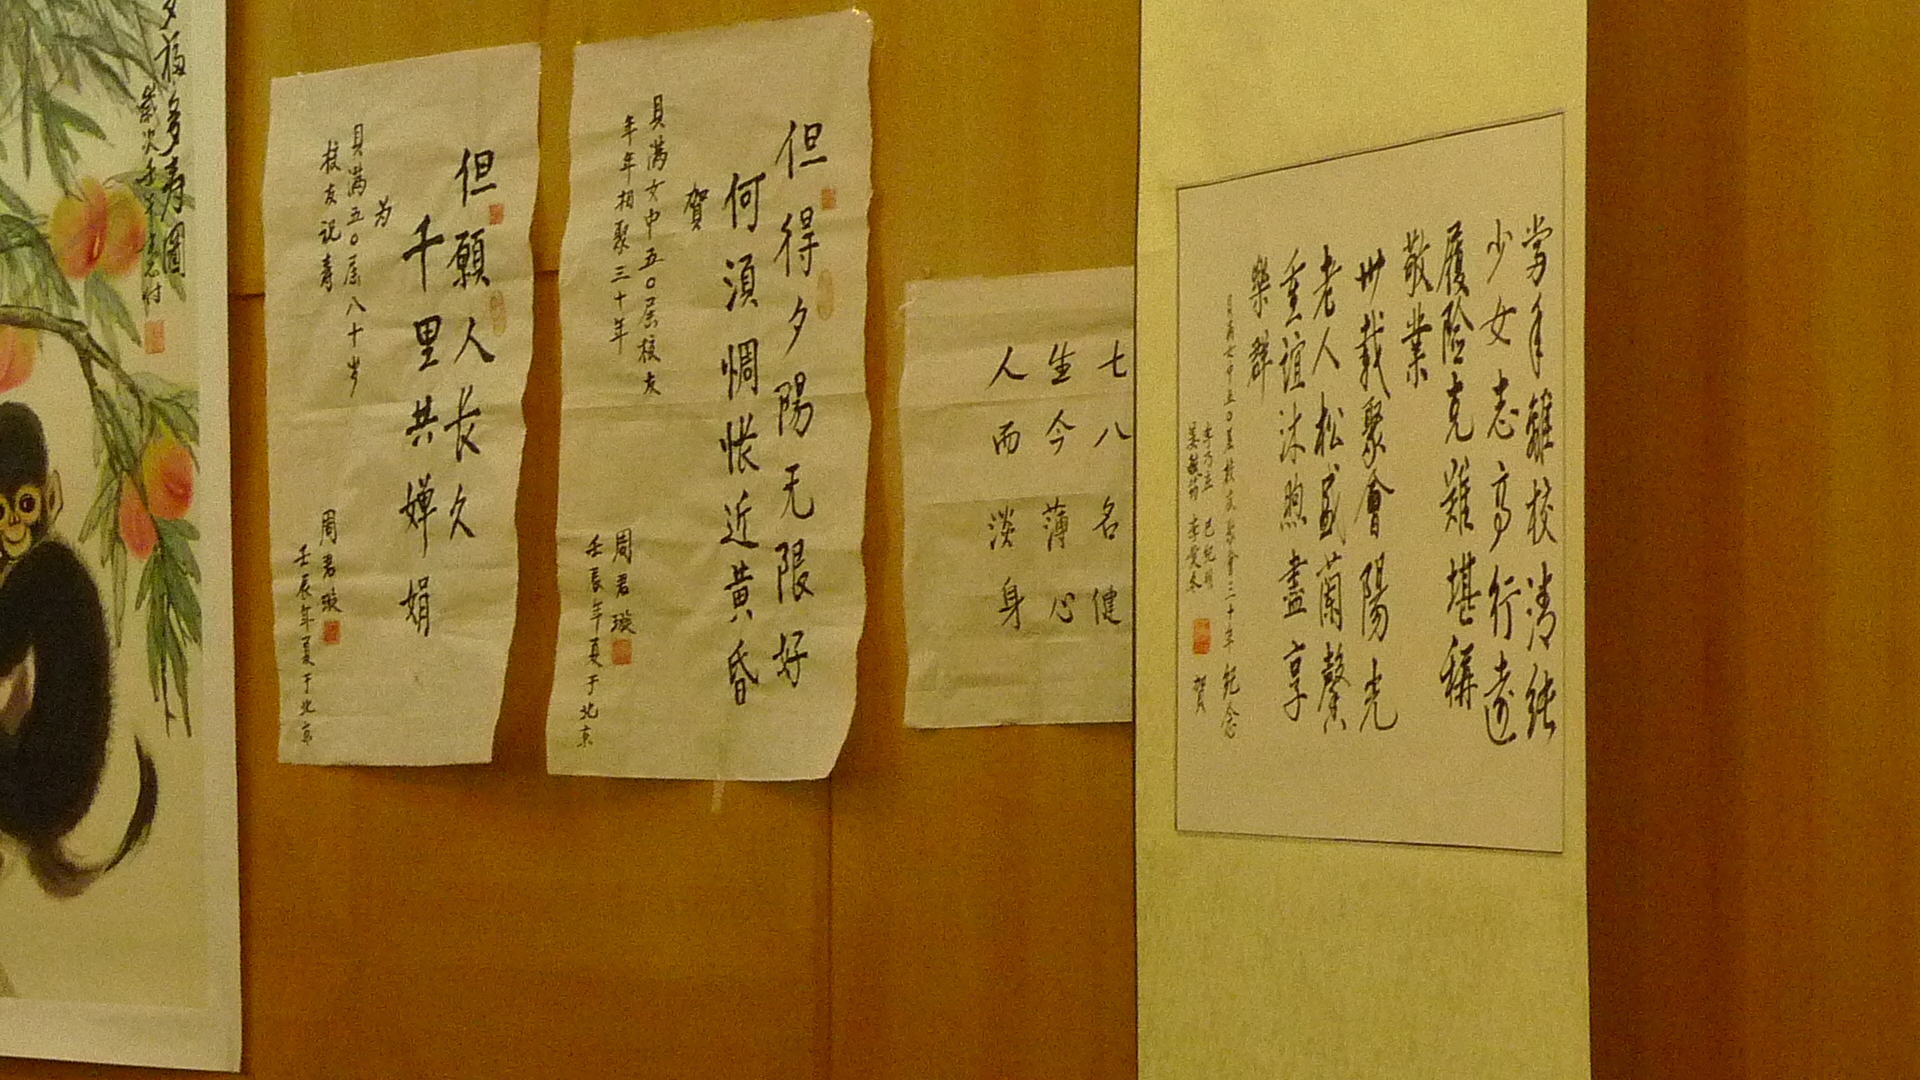 當年離校清純
少女志高行遠
履险克难堪稱
敬業
卅载聚會陽光
老人松盛蘭馨
重谊沐煦盡享
樂群
貝满女中五〇届校友聚會三十年 纪念
賀
七八名健
生今薄心
人而淡身
但得夕陽无限好
何須惆怅近黄昏
賀
貝满女中五〇届校友
年年相聚三十年
周君璇
壬辰年夏于北京
但願人长久
千里共婵娟
为
貝满五〇届八十岁
校友祝寿
周君璇
壬辰年夏于北京
多福多寿圖
歲次壬午